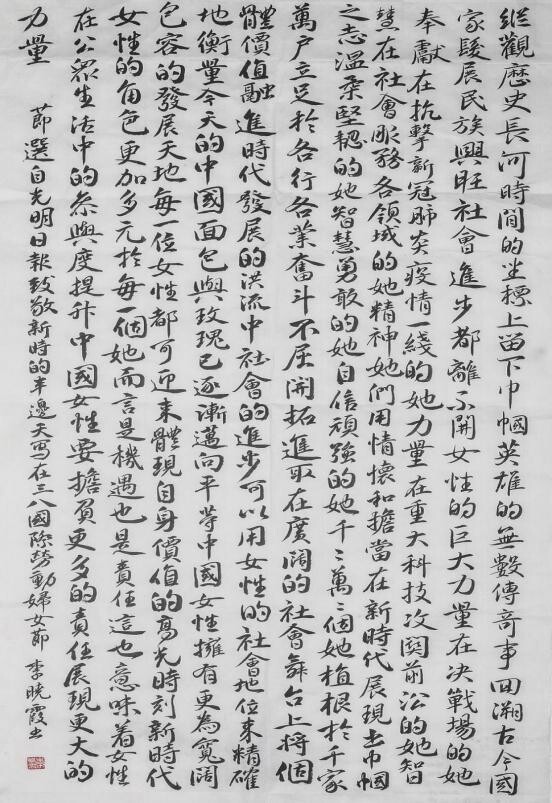 縱觀歷史長河時間的坐標上留下巾幗英雄的無數傳奇事回溯古今國
家發展民族興旺社會進步都離不開女性的巨大力量在決戰場的她
奉獻在抗擊新冠肺炎疫情一綫的她力量在重大科技攻關前沿的她智
慧在社會服務各領域的她精神她們用情懷和擔當在新時代展現出巾幗
之志溫柔堅韌的她智慧勇敢的她自信頑強的她千〻萬〻個她植根於千家
萬户立足於各行各業奮斗不屈開拓進取在廣闊的社會舞台上將個
體價值融進時代發展的洪流中社會的進步可以用女性的社會地位來精確
地衡量今天的中國面包與玫瑰已逐漸邁向平等中國女性擁有更為寬闊
包容的發展天地每一位女性都可迎來體現自身價值的高光時刻新時代
女性的角色更加多元於每一個她而言是機遇也是責任這也意味着女性
在公眾生活中的參與度提升中國女性要擔負更多的責任展現更大的
力量
節選自光明日報致敬新時的半邊天寫在三八國際勞動婦女節 李曉霞書